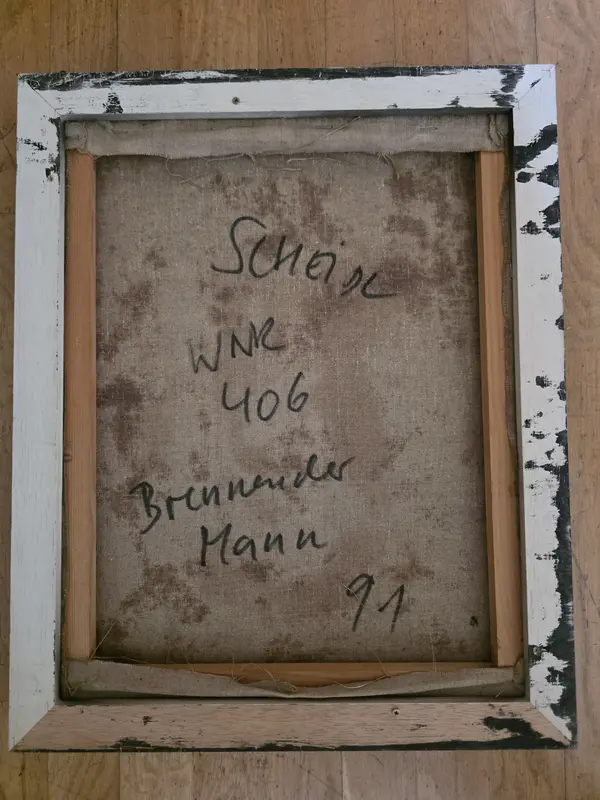 Scheidl
WNR
406
Brennender
Mann
91